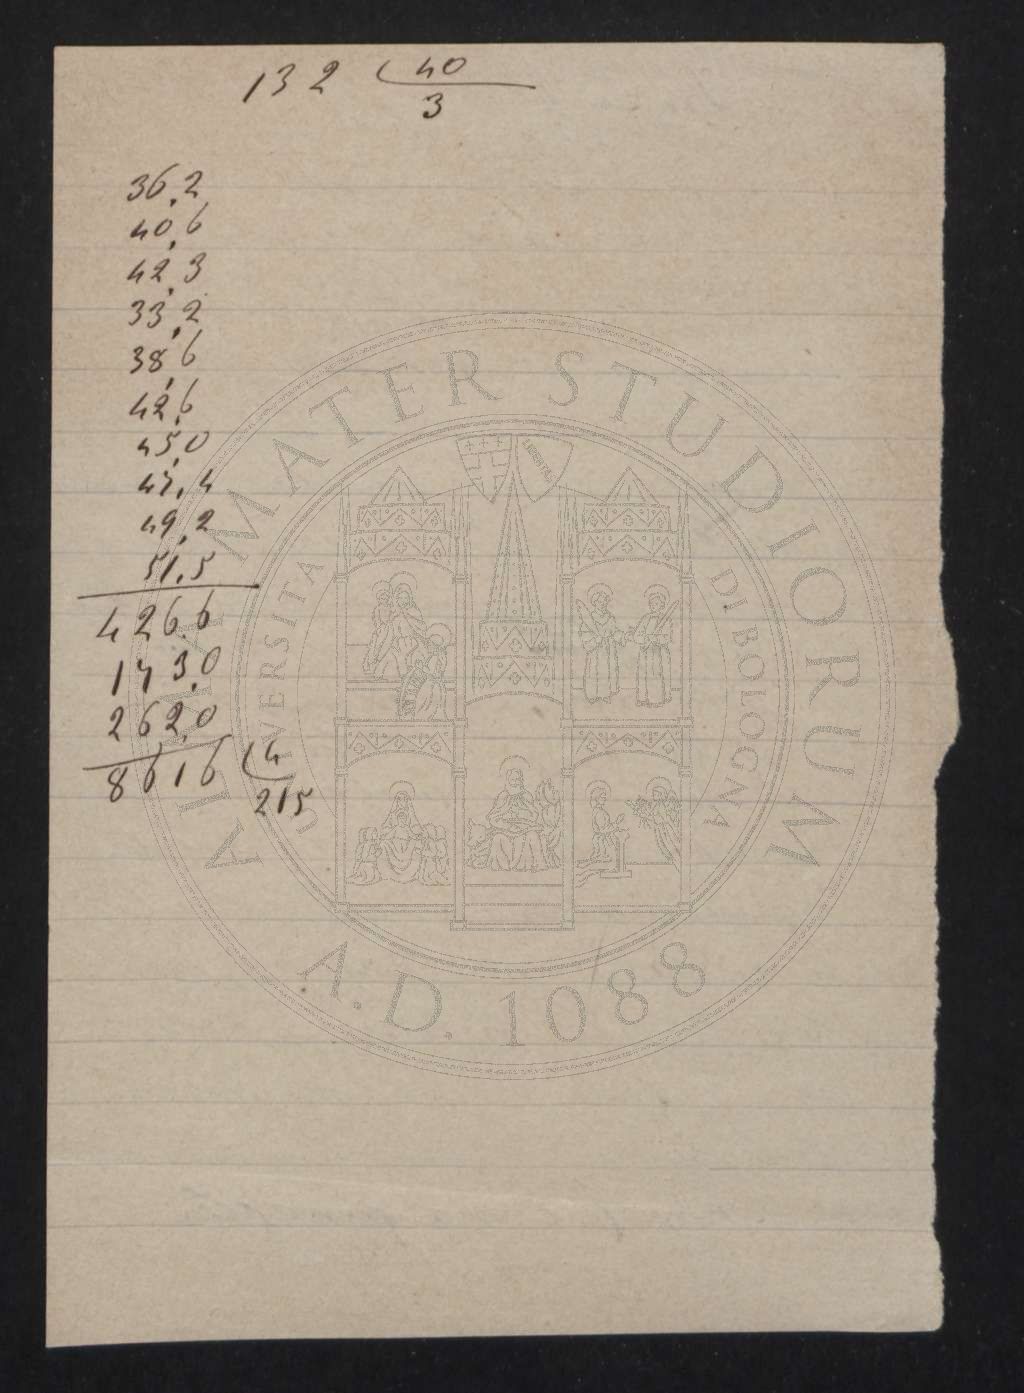 132 40
3
36,2
40,6
42,3
33,2
38,6
42,6
45,0
47,4
49,2
51,5
426,6
173,0
262,0
8616 4
215
ALMA MATER STUDIORUM
UNIVERSITA DI BOLOGNA
A.D. 1088